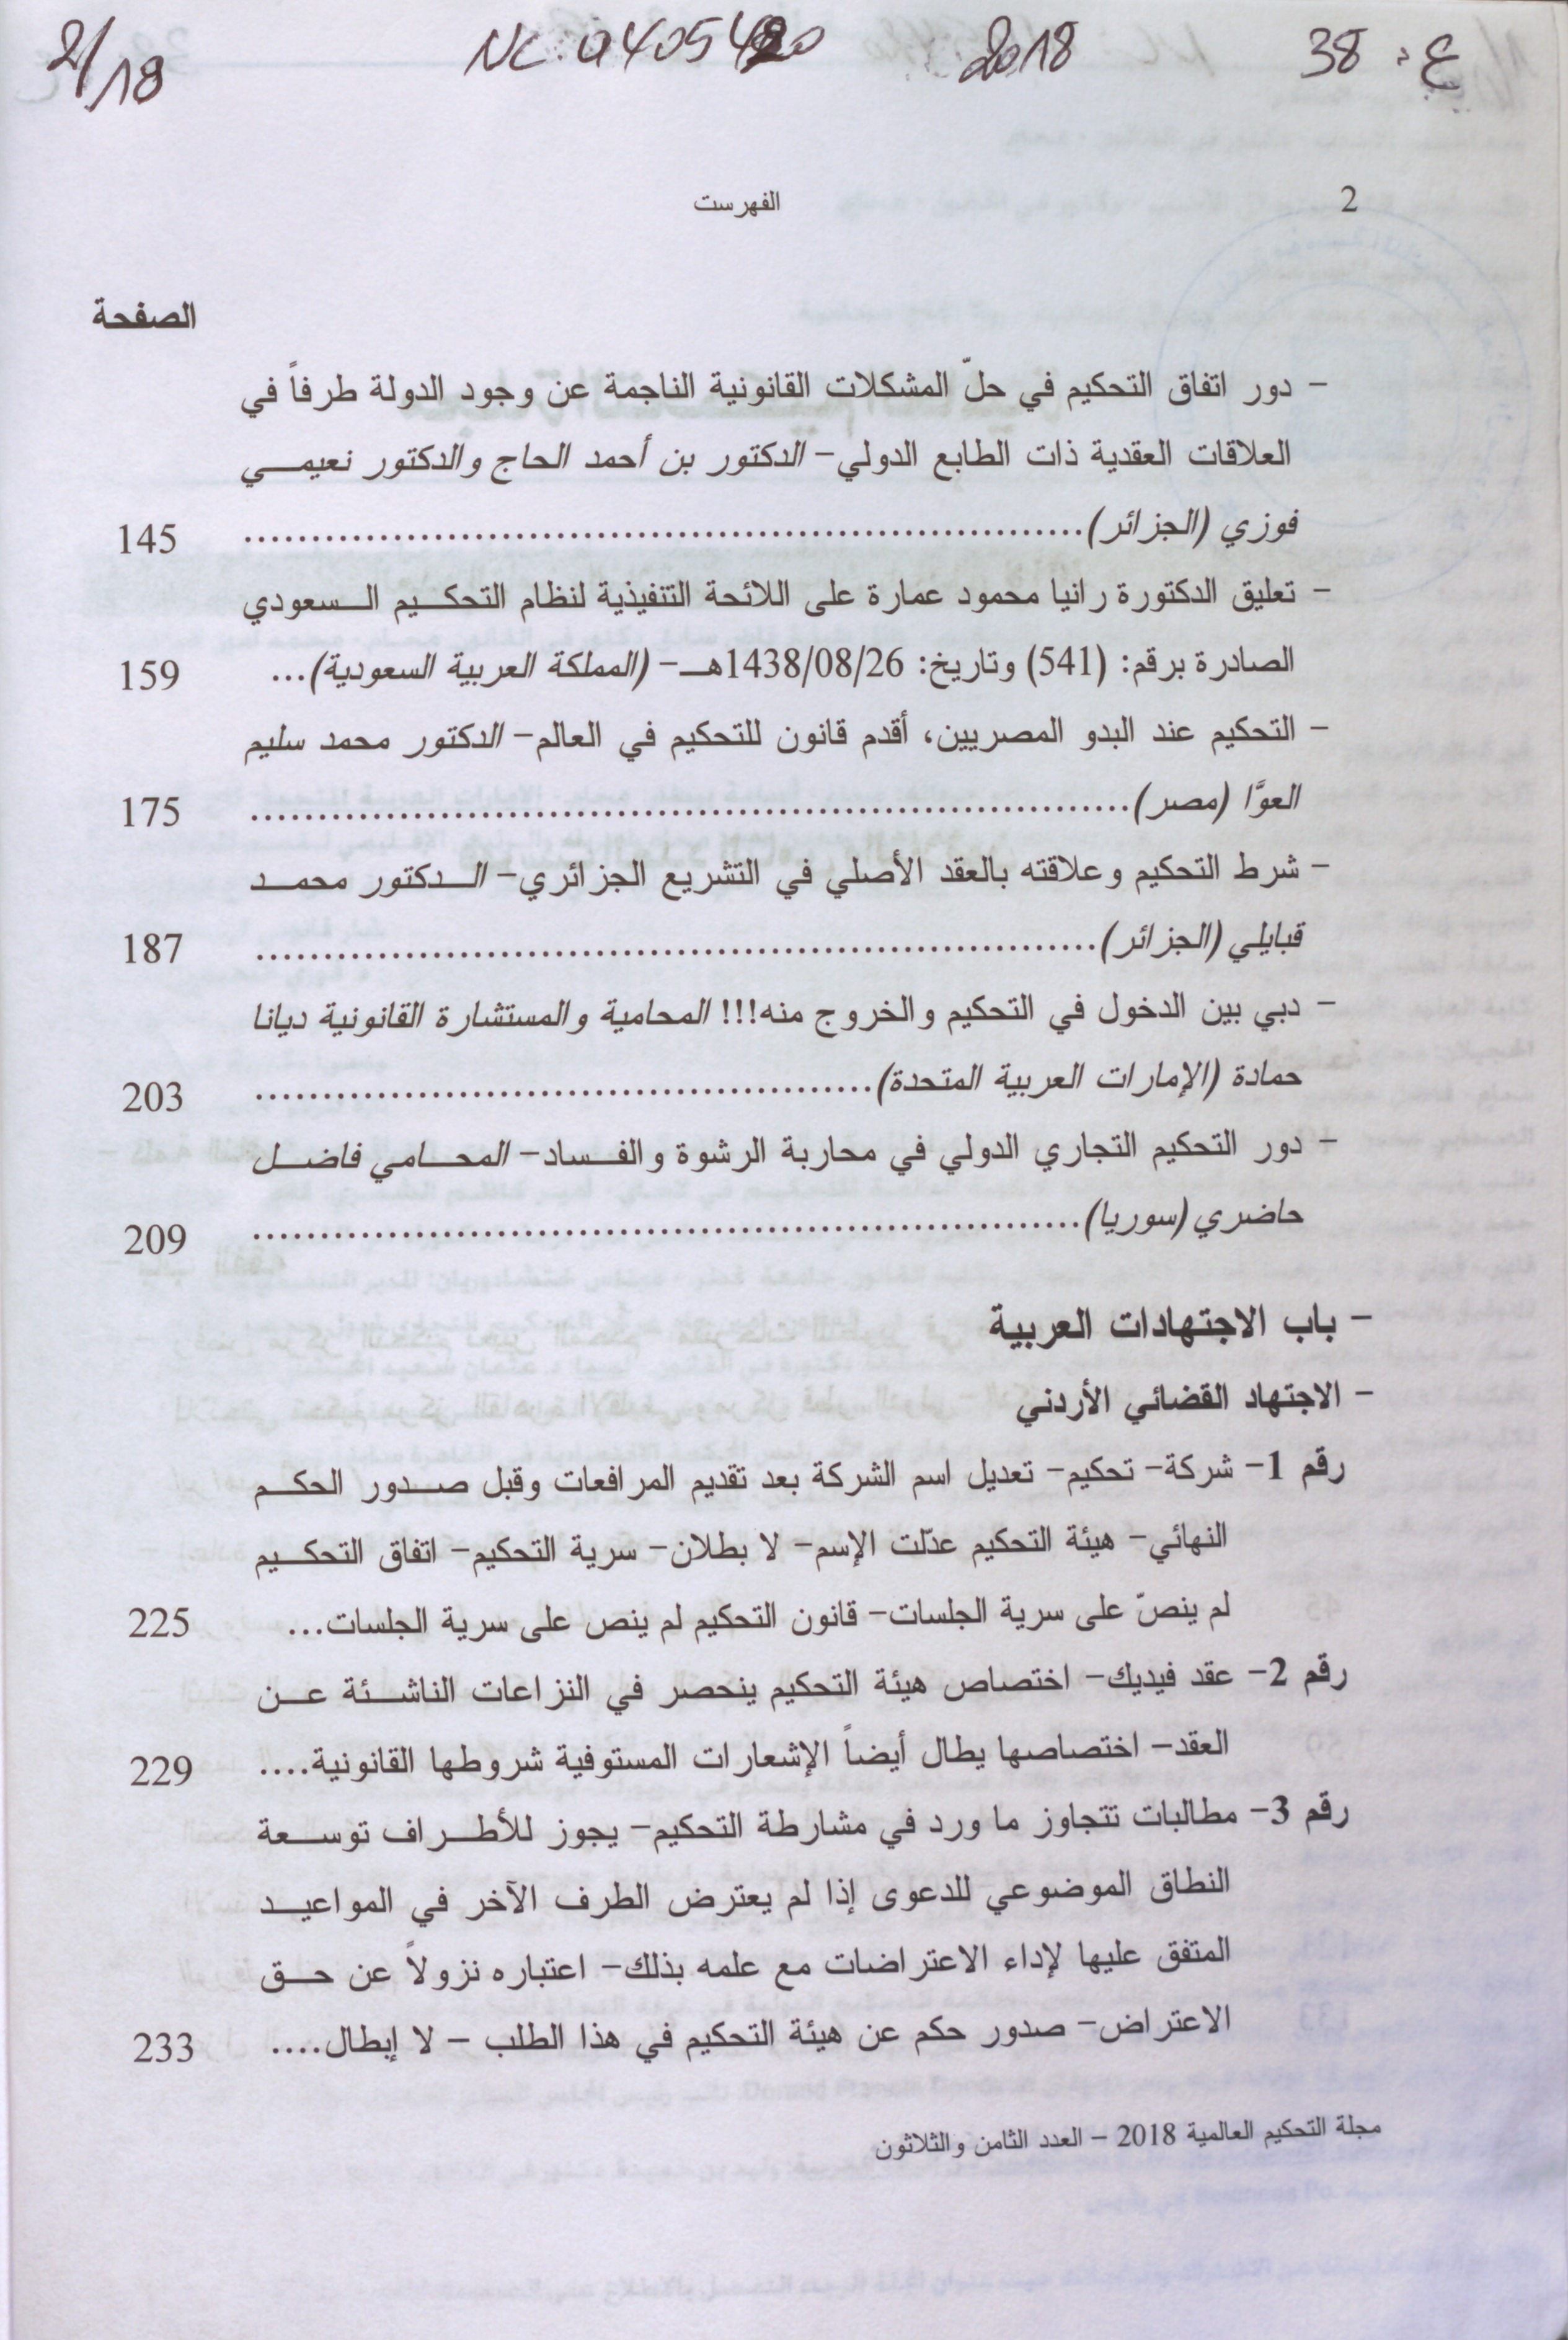 2/18 NC: 0405420 2018 ع: 38
2 الفهرست
الصفحة
– دور اتفاق التحكيم في حلّ المشكلات القانونية الناجمة عن وجود الدولة طرفاً في
العلاقات العقدية ذات الطابع الدولي– الدكتور بن أحمد الحاج والدكتور نعيمي
فوزي (الجزائر)............................................................... 145
– تعليق الدكتورة رانيا محمود عمارة على اللائحة التنفيذية لنظام التحكيم السعودي
الصادرة برقم: (541) وتاريخ: 1438/08/26هـ– (المملكة العربية السعودية)... 159
– التحكيم عند البدو المصريين، أقدم قانون للتحكيم في العالم– الدكتور محمد سليم
العوَّا (مصر).................................................................. 175
– شرط التحكيم وعلاقته بالعقد الأصلي في التشريع الجزائري– الدكتور محمد
قبايلي (الجزائر)............................................................... 187
– دبي بين الدخول في التحكيم والخروج منه!!! المحامية والمستشارة القانونية ديانا
حمادة (الإمارات العربية المتحدة).............................................. 203
– دور التحكيم التجاري الدولي في محاربة الرشوة والفساد– المحامي فاضل
حاضري (سوريا).............................................................. 209
– باب الاجتهادات العربية
– الاجتهاد القضائي الأردني
رقم 1– شركة– تحكيم– تعديل اسم الشركة بعد تقديم المرافعات وقبل صدور الحكم
النهائي– هيئة التحكيم عدّلت الإسم– لا بطلان– سرية التحكيم– اتفاق التحكيم
لم ينصّ على سرية الجلسات– قانون التحكيم لم ينص على سرية الجلسات... 225
رقم 2– عقد فيديك– اختصاص هيئة التحكيم ينحصر في النزاعات الناشئة عن
العقد– اختصاصها يطال أيضاً الإشعارات المستوفية شروطها القانونية.... 229
رقم 3– مطالبات تتجاوز ما ورد في مشارطة التحكيم– يجوز للأطراف توسعة
النطاق الموضوعي للدعوى إذا لم يعترض الطرف الآخر في المواعيد
المتفق عليها لإداء الاعتراضات مع علمه بذلك– اعتباره نزولاً عن حق
الاعتراض– صدور حكم عن هيئة التحكيم في هذا الطلب – لا إبطال.... 233
مجلة التحكيم العالمية 2018 – العدد الثامن والثلاثون